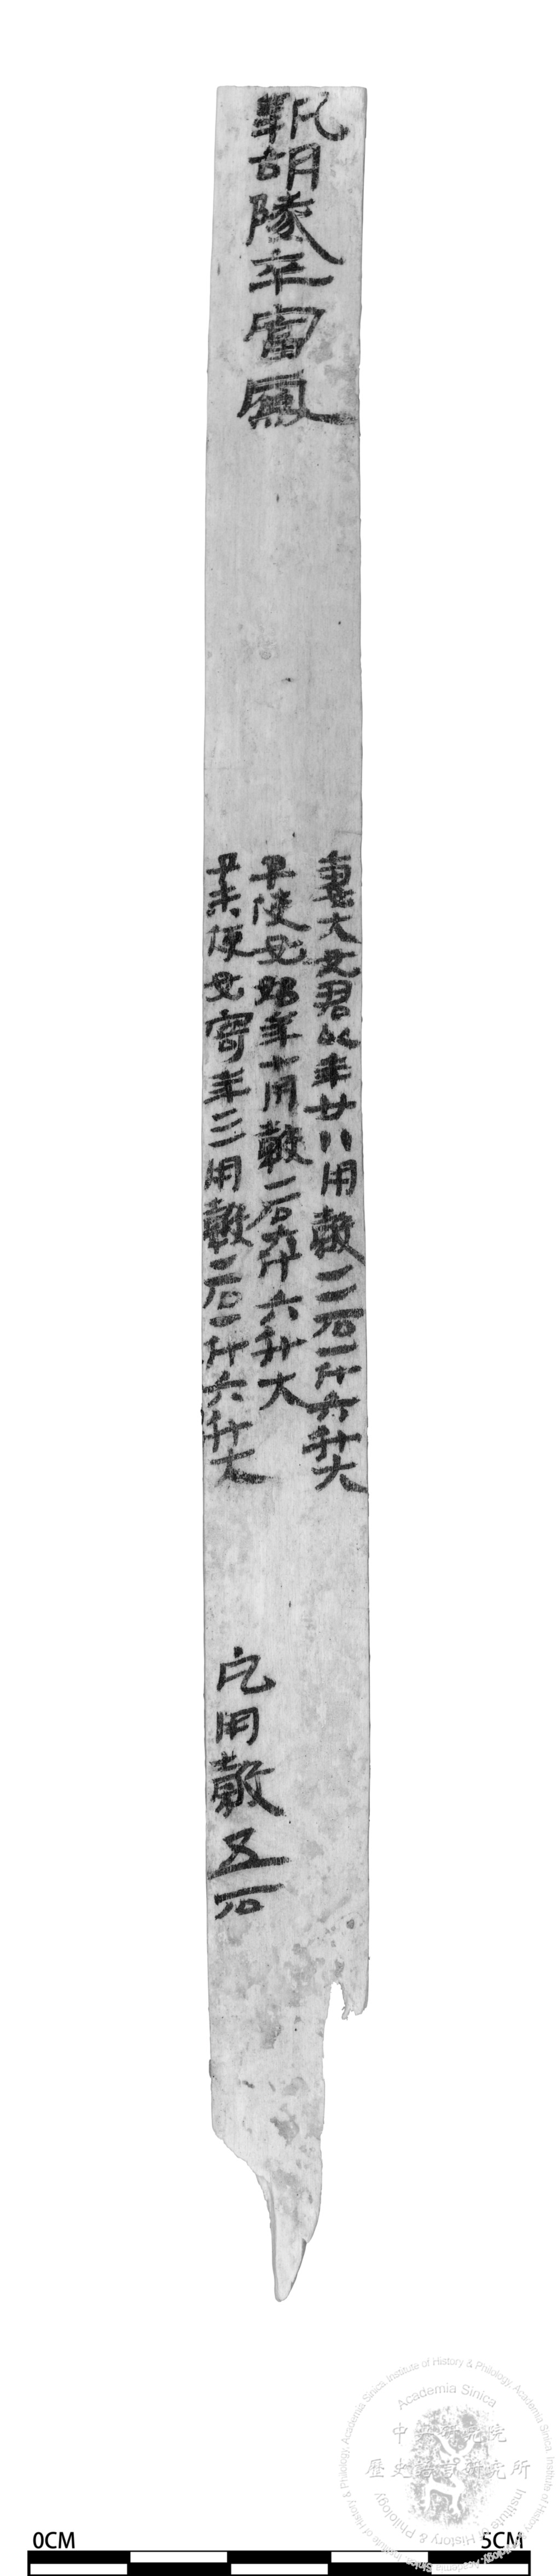 執胡隊卒富鳳
妻大女君以年廿八用穀二石一斗六升大
子使女始年七用穀一石六斗六升大
子未使女寄年三用穀一石一斗六升大
凡用穀五石
Institute of History & Philology, Academia Sinica
Academia Sinica
中央研究院
歷史語言研究所
Institute of History & Philology
0CM 5CM